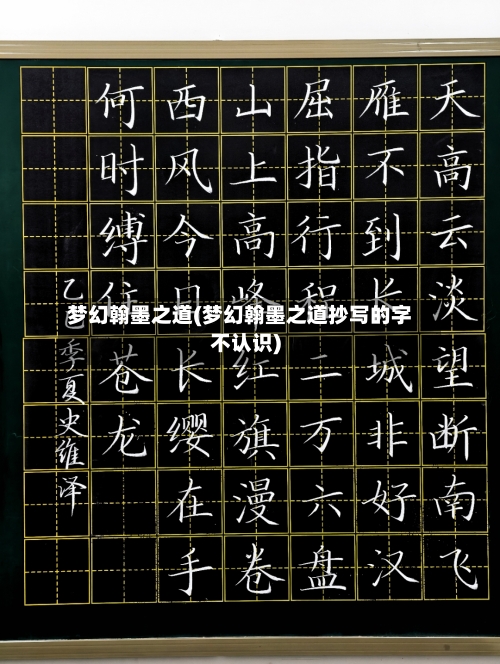 天高云淡望断南飞
雁不到长城非好汉
屈指行程二万六盘
山上高峰红旗漫卷
西风今日长缨在手
何时缚住苍龙
乙巳季夏史维泽
梦幻翰墨之道(梦幻翰墨之道抄写的字
不认识)